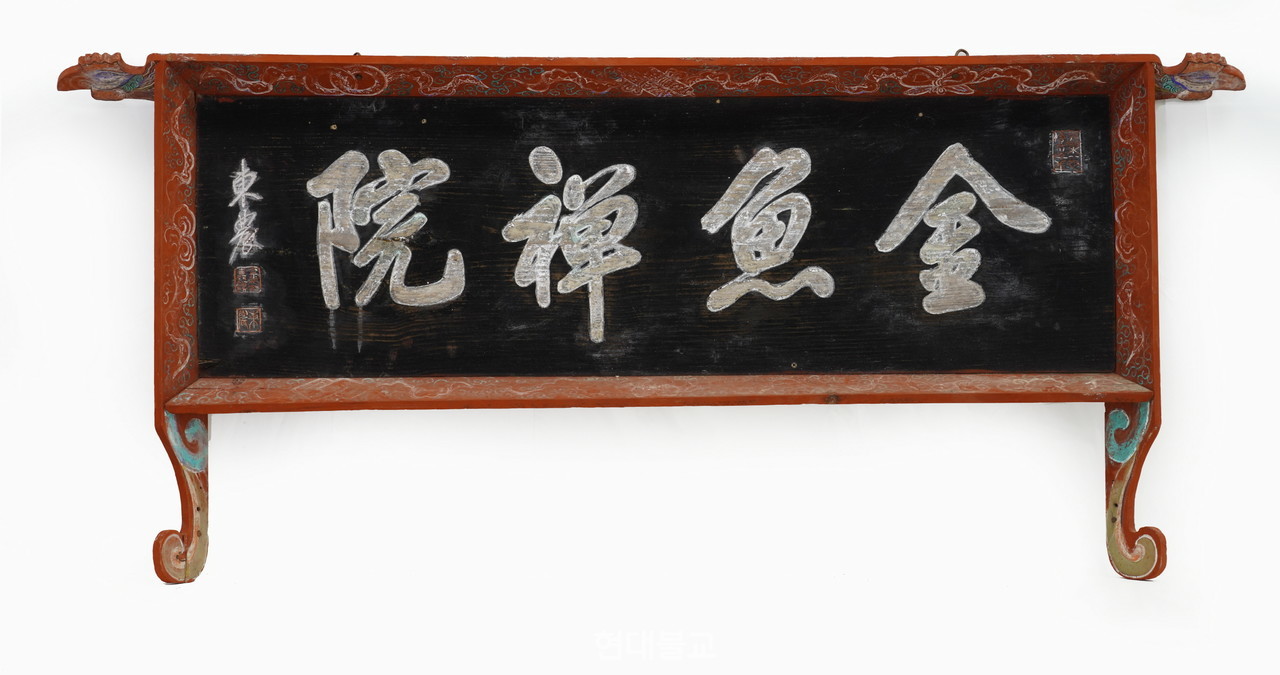 金魚禪院
東農
현대불교